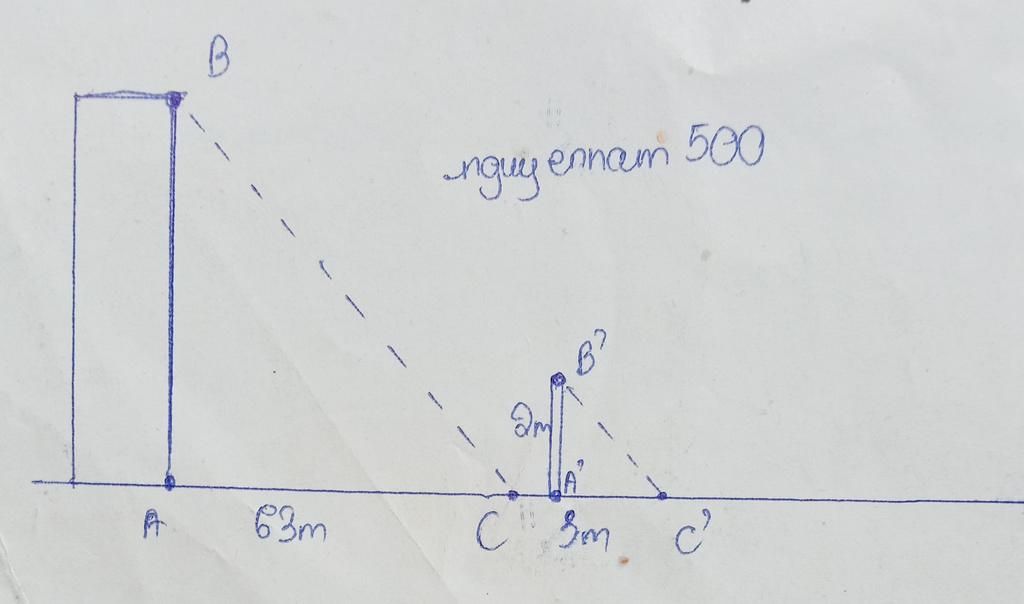 B
nguyennam 500
B'
2m
A'
A 63m C 3m C'